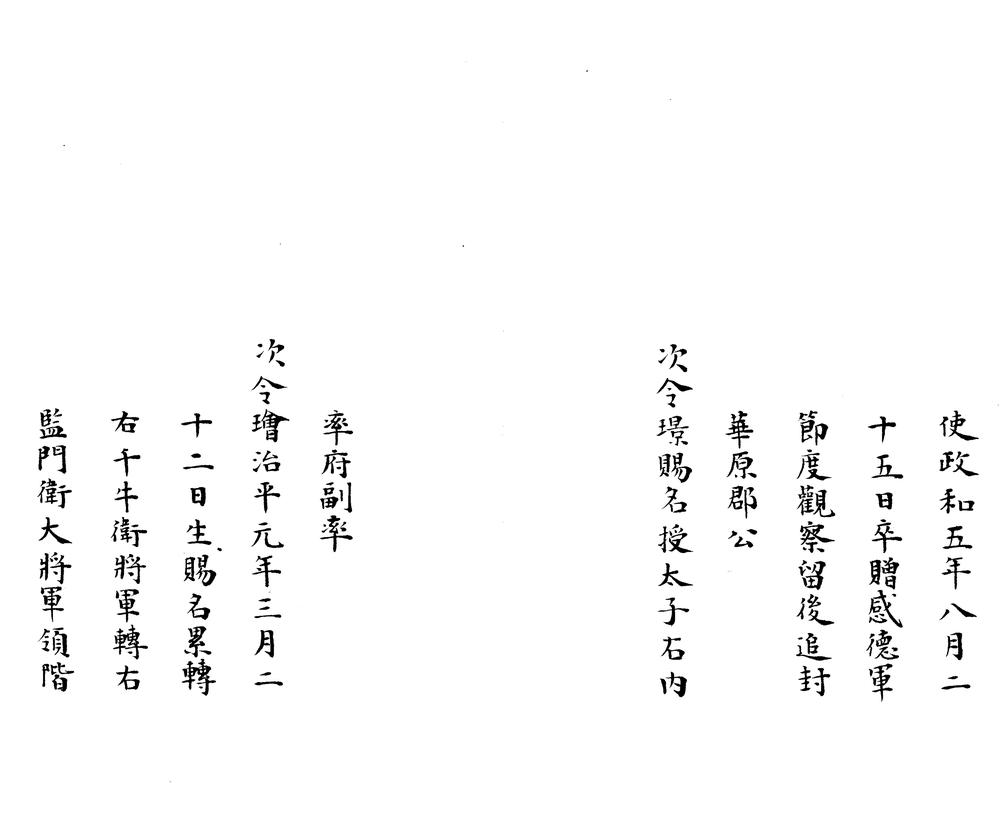 使政和五年八月二
十五日卒贈感德軍
節度觀察留後追封
華原郡公
次令璟賜名授太子右内
率府副率
次令璯治平元年三月二
十二日生賜名累轉
右千牛衛將軍轉右
監門衛大將軍領階